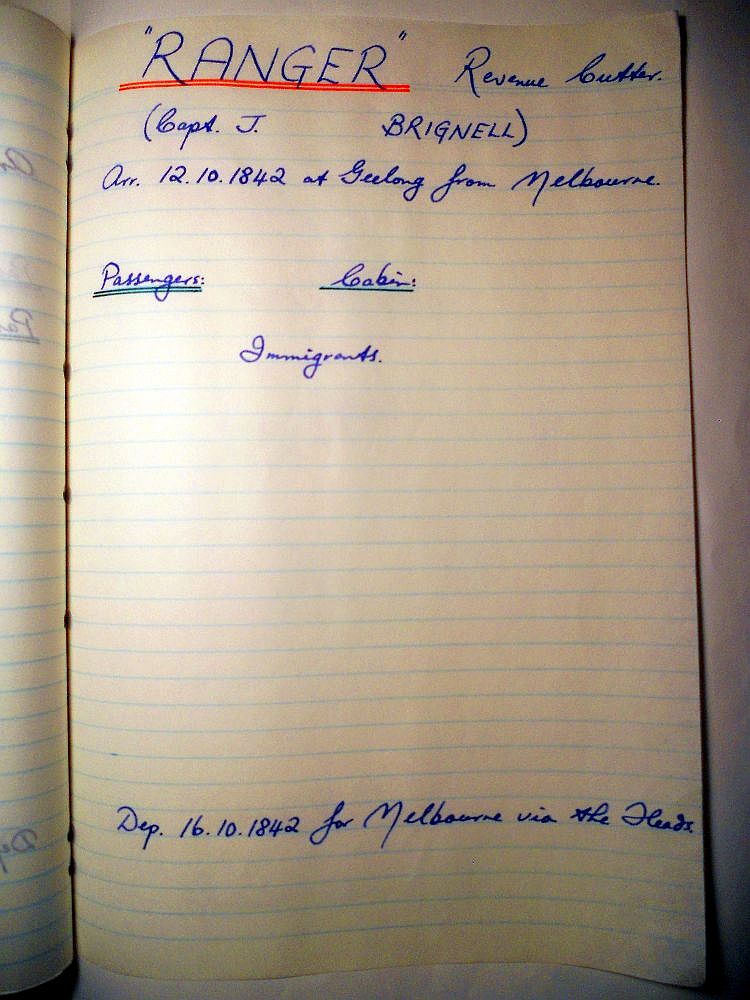 "RANGER" Revenue Cutter.
(Capt. J. BRIGNELL)
Arr. 12.10.1842 at Geelong from Melbourne.
Passengers: Cabin:
Immigrants.
Dep. 16.10.1842 for Melbourne via the Heads.